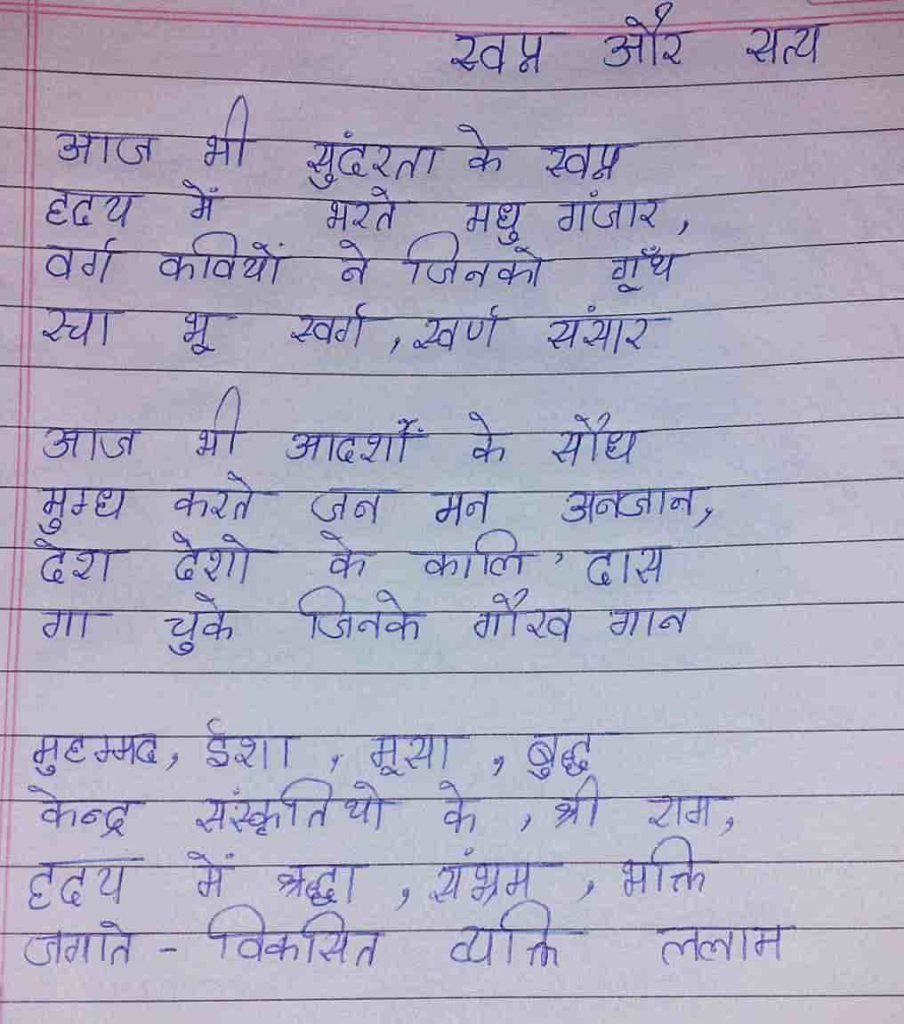 स्वप्न और सत्य
आज भी सुंदरता के स्वप्न
हृदय में भरते मधु गंजार,
वर्ग कवियों ने जिनको गूँथ
रचा भू स्वर्ग, स्वर्ण संसार
आज भी आदर्शों के सौध
मुग्ध करते जन मन अनजान,
देश देशो के कालि ' दास
गा चुके जिनके गौरव गान
मुहम्मद, ईशा, मूसा, बुद्ध
केन्द्र संस्कृतियो के, श्री राम,
हृदय में श्रद्धा, संभ्रम, भक्ति
जगाते - विकसित व्यक्ति ललाम